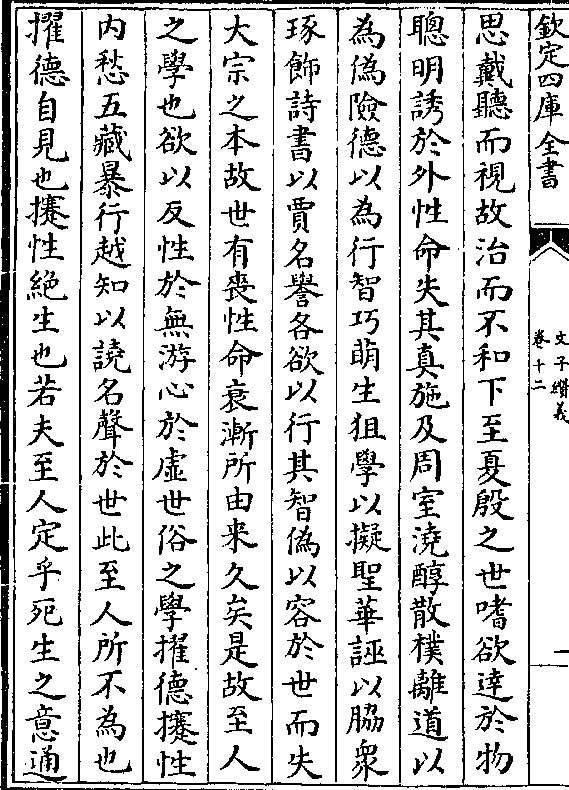 欽定四庫全書
文子纘義
卷十二
一
思戴聽而視故治而不和下至夏殷之世嗜欲達於物
聰明誘於外性命失其真施及周室澆醇散樸離道以
為偽險德以為行智巧萌生狙學以擬聖華誣以脇衆
琢飾詩書以賈名譽各欲以行其智偽以容於世而失
大宗之本故世有喪性命衰漸所由来久矣是故至人
之學也欲以反性於無游心於虛世俗之學擢德攓性
内愁五藏暴行越知以譊名聲於世此至人所不為也
擢德自見也攓性絶生也若夫至人定乎死生之意通